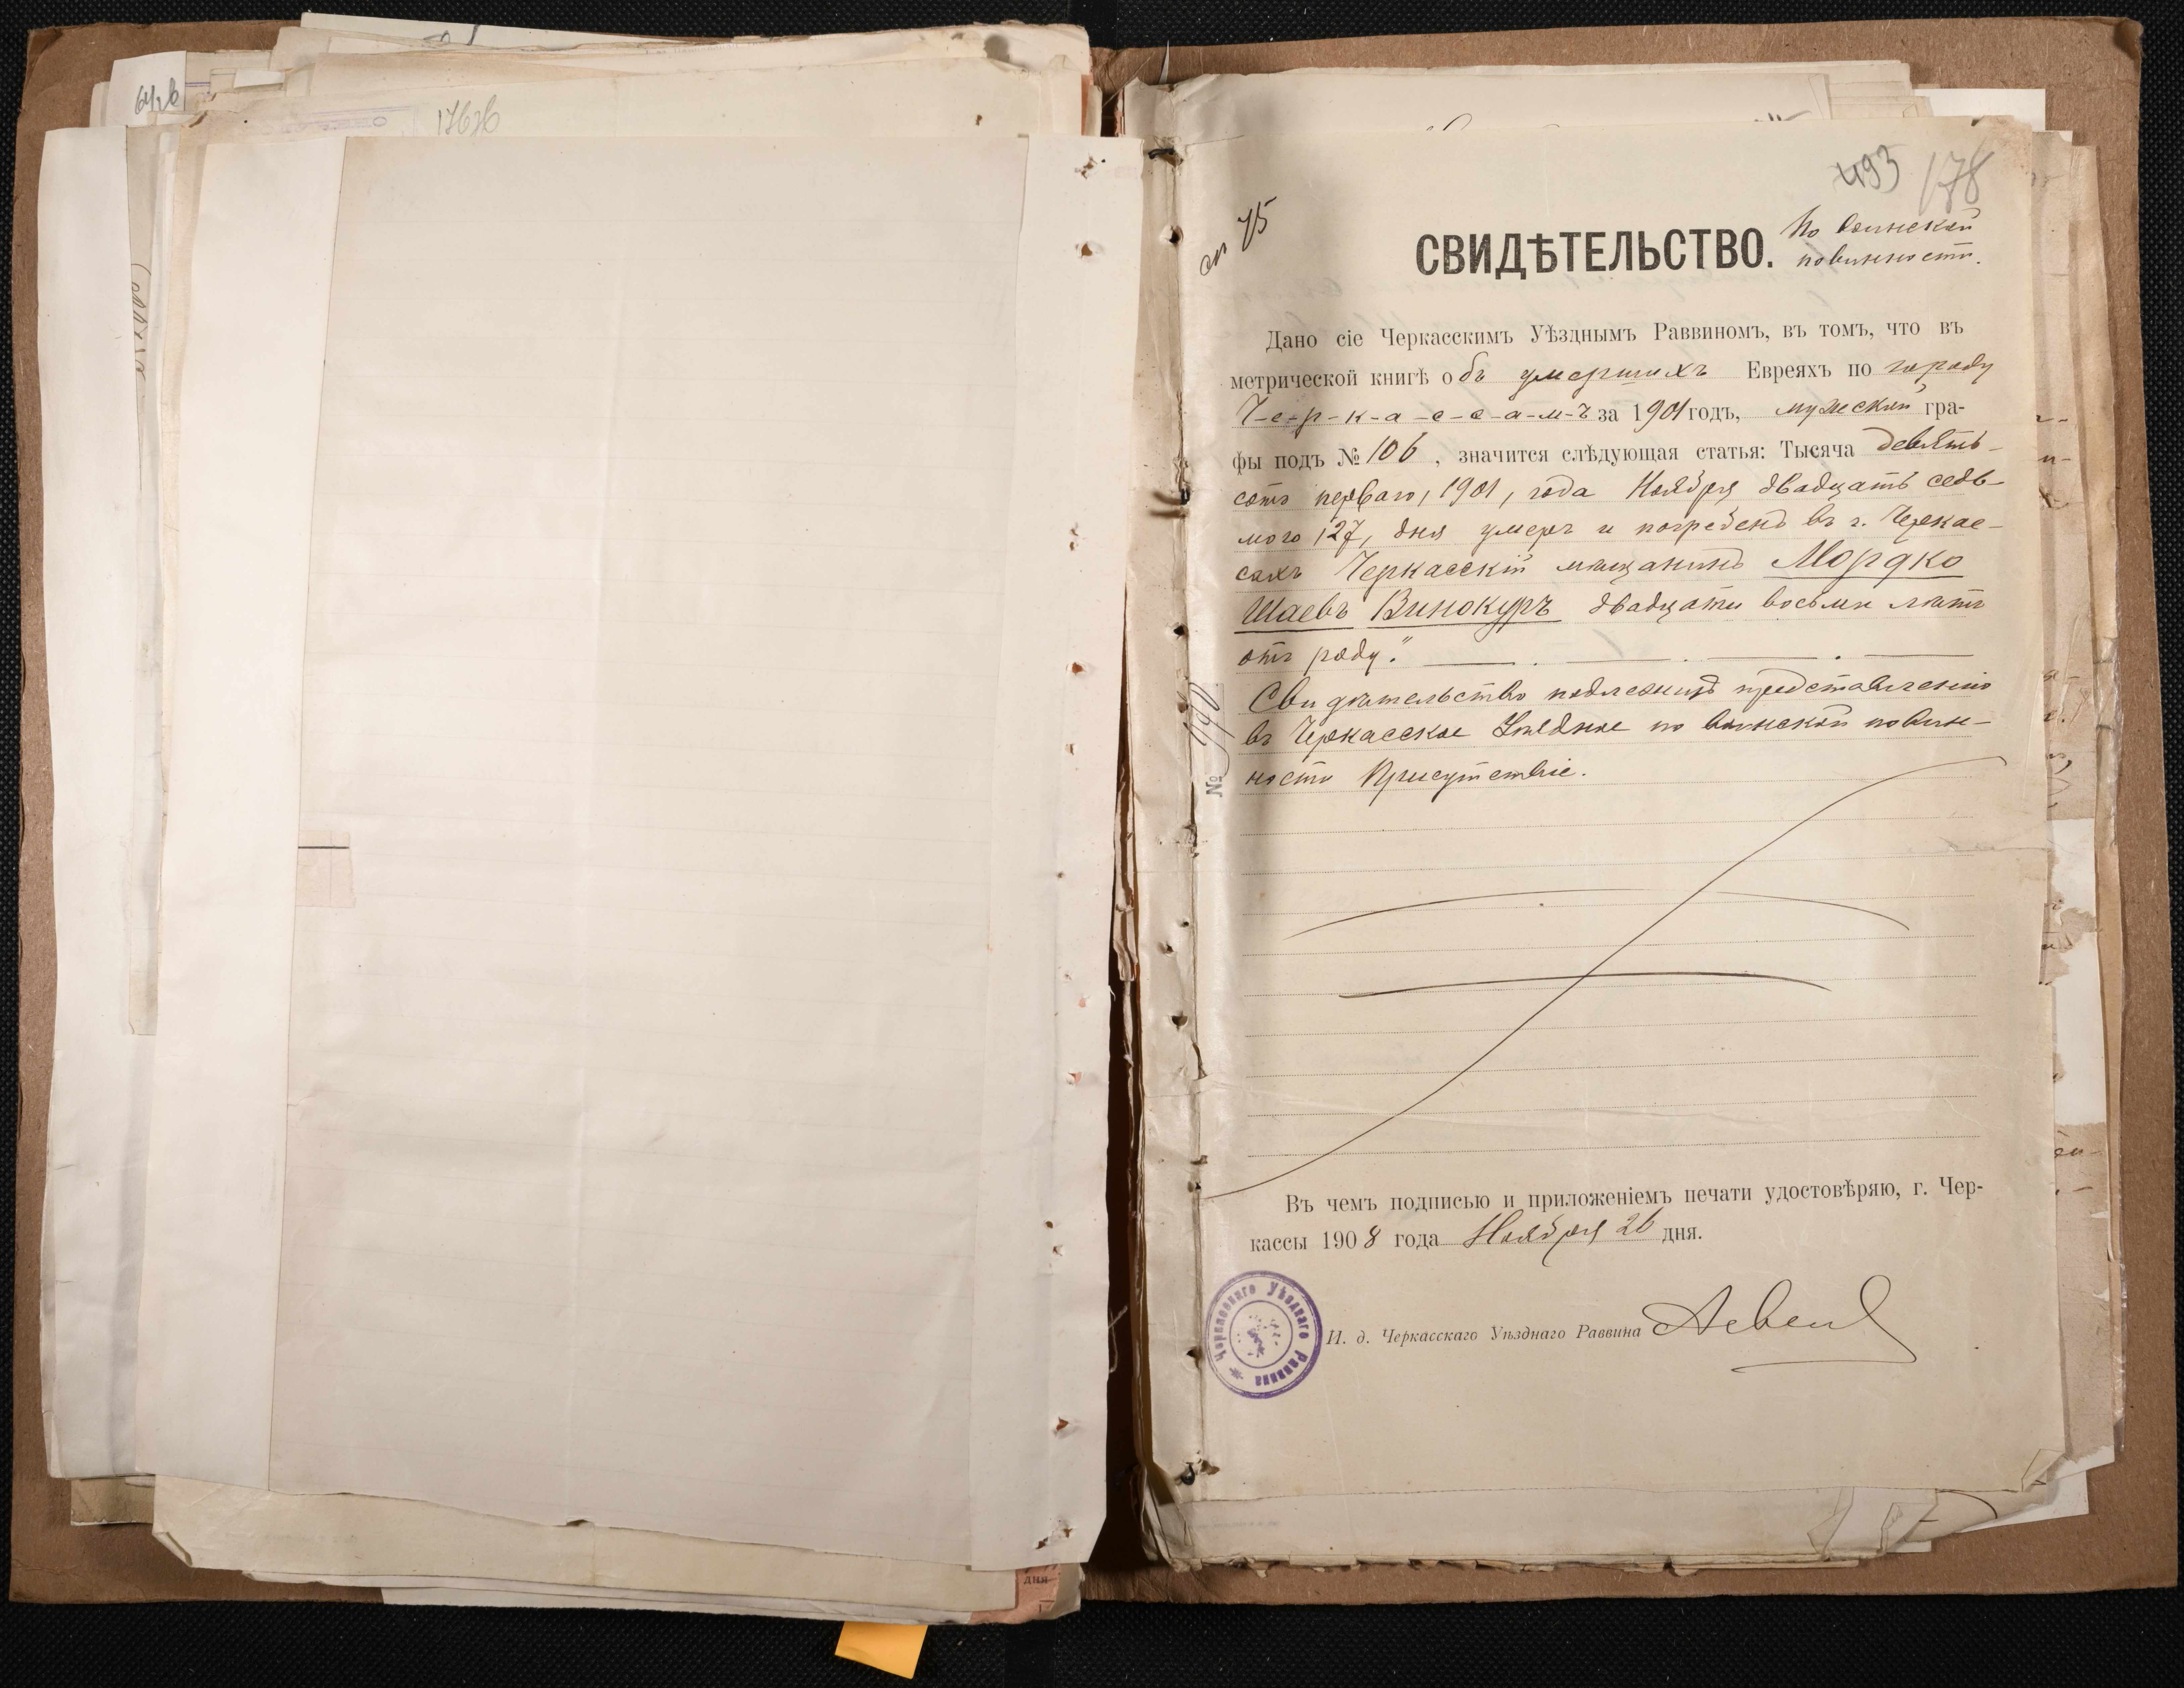 1763б
493 178
сп 75
СВИДѢТЕЛЬСТВО.
По воинской
повинности.
Дано сіе Черкасскимъ Уѣзднымъ Раввиномъ, въ томъ, что въ
метрической книгѣ объ умершихъ Евреяхъ по городу
Ч-е-р-к-а-с-с-а-м-ъ за 1901 годъ, мужской гра-
фы подъ № 106, значится слѣдующая статья: Тысяча девять-
сотъ перваго, 1901, года Ноября двадцать седь-
мого, 27, дня умеръ и погребенъ въ г. Черкас-
сахъ Черкасскій мѣщанинъ Мордко
Шаевъ Винокуръ двадцати восьми лѣтъ
отъ роду."
Свидѣтельство подлежитъ представленію
въ Черкасское Уѣздное по воинской повин-
ности Присутствіе.
№ 740
Въ чемъ подписью и приложеніемъ печати удостовѣряю, г. Чер-
кассы 1908 года Ноября 26 дня.
Черкасскаго Уѣзднаго Раввина
И. д. Черкасскаго Уѣзднаго Раввина
дня